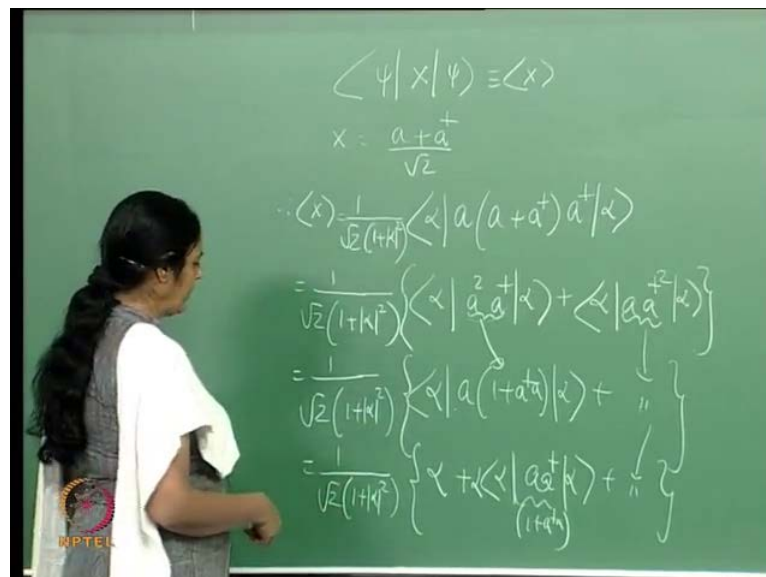 ⟨ψ|x|ψ⟩ ≡ ⟨x⟩
x = (a + a†)/√2
∴ ⟨x⟩ = 1/(√2(1+|α|²)) ⟨α|a(a + a†)a†|α⟩
= 1/(√2(1+|α|²)) {⟨α|a² a†|α⟩ + ⟨α|a a†²|α⟩}
= 1/(√2(1+|α|²)) {⟨α|a(1+a†a)|α⟩ + " }
= 1/(√2(1+|α|²)) {α + α⟨α|aa†|α⟩ + " }
(1+a†a)
NPTEL